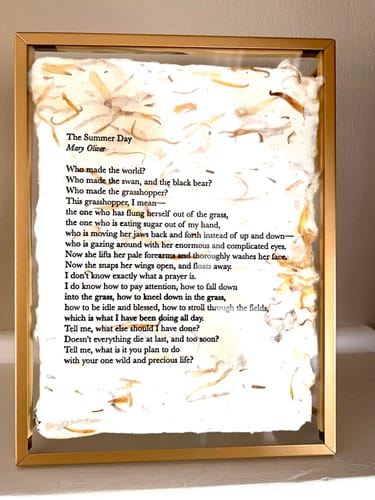 The Summer Day
Mary Oliver
Who made the world?
Who made the swan, and the black bear?
Who made the grasshopper?
This grasshopper, I mean—
the one who has flung herself out of the grass,
the one who is eating sugar out of my hand,
who is moving her jaws back and forth instead of up and down—
who is gazing around with her enormous and complicated eyes.
Now she lifts her pale forearms and thoroughly washes her face.
Now she snaps her wings open, and floats away.
I don't know exactly what a prayer is.
I do know how to pay attention, how to fall down
into the grass, how to kneel down in the grass,
how to be idle and blessed, how to stroll through the fields,
which is what I have been doing all day.
Tell me, what else should I have done?
Doesn't everything die at last, and too soon?
Tell me, what is it you plan to do
with your one wild and precious life?